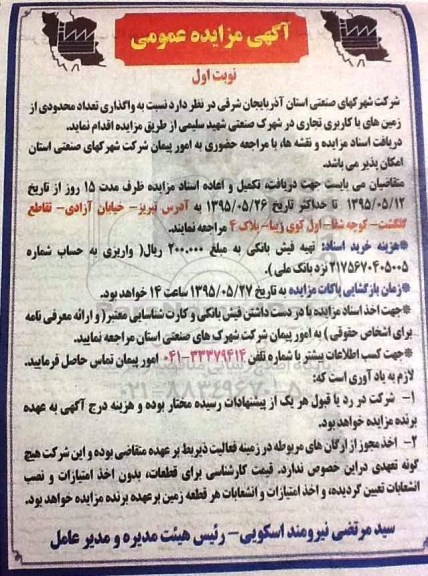 آگهی مزایده عمومی
نوبت اول
شرکت شهرکهای صنعتی استان آذربایجان شرقی در نظر دارد نسبت به واگذاری تعداد محدودی از
زمین های با کاربری تجاری در شهرک صنعتی شهید سلیمی از طریق مزایده اقدام نماید.
دریافت اسناد مزایده و نقشه ها، با مراجعه حضوری به امور پیمان شرکت شهرکهای صنعتی استان
امکان پذیر می باشد.
متقاضیان می بایست جهت دریافت، تکمیل و اعاده اسناد مزایده ظرف مدت ۱۵ روز از تاریخ
۱۳۹۵/۰۵/۱۲ تا حداکثر تاریخ ۱۳۹۵/۰۵/۲۶ به آدرس تبریز- خیابان آزادی- تقاطع
گلگشت- کوچه شفا- اول کوی زیبا- پلاک ۴ مراجعه نمایند.
*هزینه خرید اسناد: تهیه فیش بانکی به مبلغ ۲۰۰.۰۰۰ ریال( واریزی به حساب شماره
۲۱۷۵۶۷۰۴۰۵۰۰۵ نزد بانک ملی ).
*زمان بازگشایی پاکات مزایده به تاریخ ۱۳۹۵/۰۵/۲۷ ساعت ۱۴ خواهد بود.
*جهت اخذ اسناد مزایده با در دست داشتن فیش بانکی و کارت شناسایی معتبر( و ارائه معرفی نامه
برای اشخاص حقوقی ) به امور پیمان شرکت شهرک های صنعتی استان مراجعه نمایید.
*جهت کسب اطلاعات بیشتر با شماره تلفن ۳۳۳۷۹۴۱۴-۰۴۱ امور پیمان تماس حاصل فرمایید.
لازم به یاد آوری است که:
۱- شرکت در رد یا قبول هر یک از پیشنهادات رسیده مختار بوده و هزینه درج آگهی به عهده
برنده مزایده خواهد بود.
۲- اخذ مجوز از ارگان های مربوطه در زمینه فعالیت ذیربط بر عهده متقاضی بوده و این شرکت هیچ
گونه تعهدی دراین خصوص ندارد. قیمت کارشناسی برای قطعات، بدون اخذ امتیازات و نصب
انشعابات تعیین گردیده، و اخذ امتیازات و انشعابات هر قطعه زمین بر عهده برنده مزایده خواهد بود.
سید مرتضی نیرومند اسکویی- رئیس هیئت مدیره و مدیر عامل